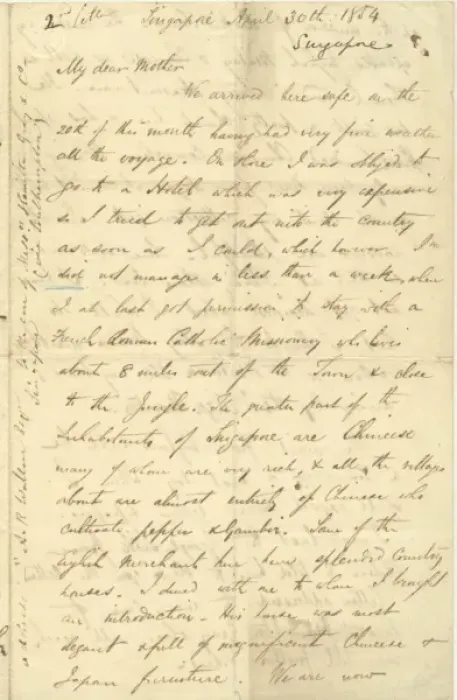 2nd letter Singapore April 30th 1854
Singapore
My dear Mother
We arrived here safe on the
20th of this month having had very fine weather
all the voyage. On shore I was obliged to
go to a Hotel which was very expensive
so I tried to get out into the country
as soon as I could, which however I
did not manage in less than a week, when
I at last got permission to stay with a
French Roman Catholic Missionary who lives
about 8 miles out of the Town & close
to the Jungle. The greater part of the
Inhabitants of Singapore are Chinese
many of whom are very rich, & all the villages
about are almost entirely of Chinese who
cultivate pepper & Gambir. Some of the
English Merchants here have splendid Country
houses. I dined with one to whom I brought
an introduction. His house was most
elegant & full of magnificent Chinese &
Japan furniture. We are now
Address A. R. Wallace Esqr to the care of Messrs Hamilton Gray & Co
Singapore via Southampton